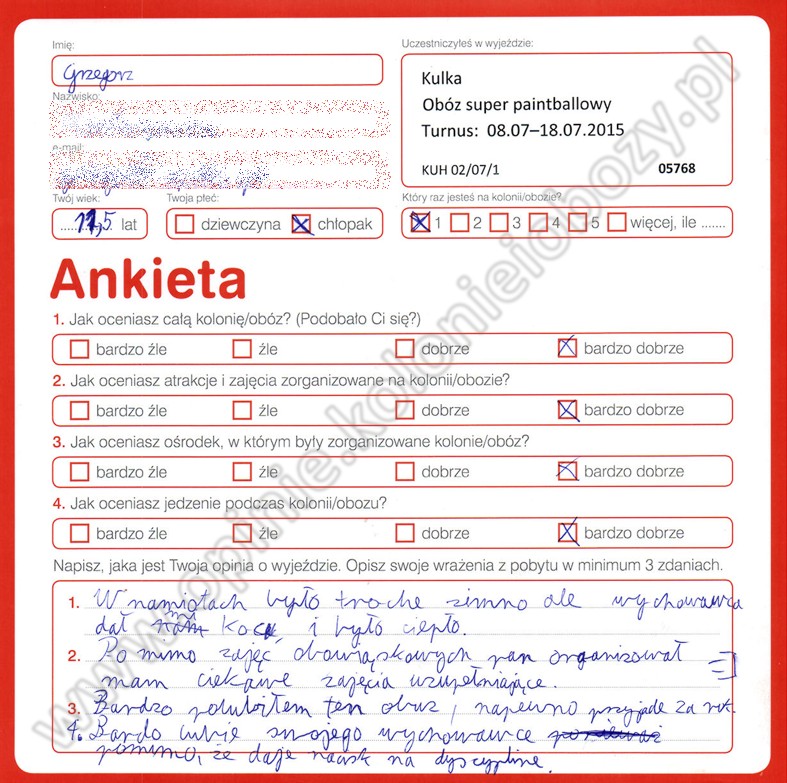 Imię:
Grzegorz
Nazwisko:
e-mail:
Twój wiek:
11,5 lat
Twoja płeć:
dziewczyna chłopak
Uczestniczyłeś w wyjeździe:
Kulka
Obóz super paintballowy
Turnus: 08.07–18.07.2015
KUH 02/07/1 05768
Który raz jesteś na kolonii/obozie?
1 2 3 4 5 więcej, ile .......
Ankieta
1. Jak oceniasz całą kolonię/obóz? (Podobało Ci się?)
bardzo źle źle dobrze bardzo dobrze
2. Jak oceniasz atrakcje i zajęcia zorganizowane na kolonii/obozie?
bardzo źle źle dobrze bardzo dobrze
3. Jak oceniasz ośrodek, w którym były zorganizowane kolonie/obóz?
bardzo źle źle dobrze bardzo dobrze
4. Jak oceniasz jedzenie podczas kolonii/obozu?
bardzo źle źle dobrze bardzo dobrze
Napisz, jaka jest Twoja opinia o wyjeździe. Opisz swoje wrażenia z pobytu w minimum 3 zdaniach.
1. W namiotach było troche zimno ale wychowawca
dał koce i było ciepło.
2. Po mimo zajęć obowiąskowych pan organizował
mam ciekawe zajęcia uzupełniające. =]
3. Bardzo polubiłem ten obuz, napewno przyjade za rok.
4. Bardo lubie swojego wychowawce
pommimo, że daje nacisk na dyscypline.
www.opinie.kolonieiobozy.pl